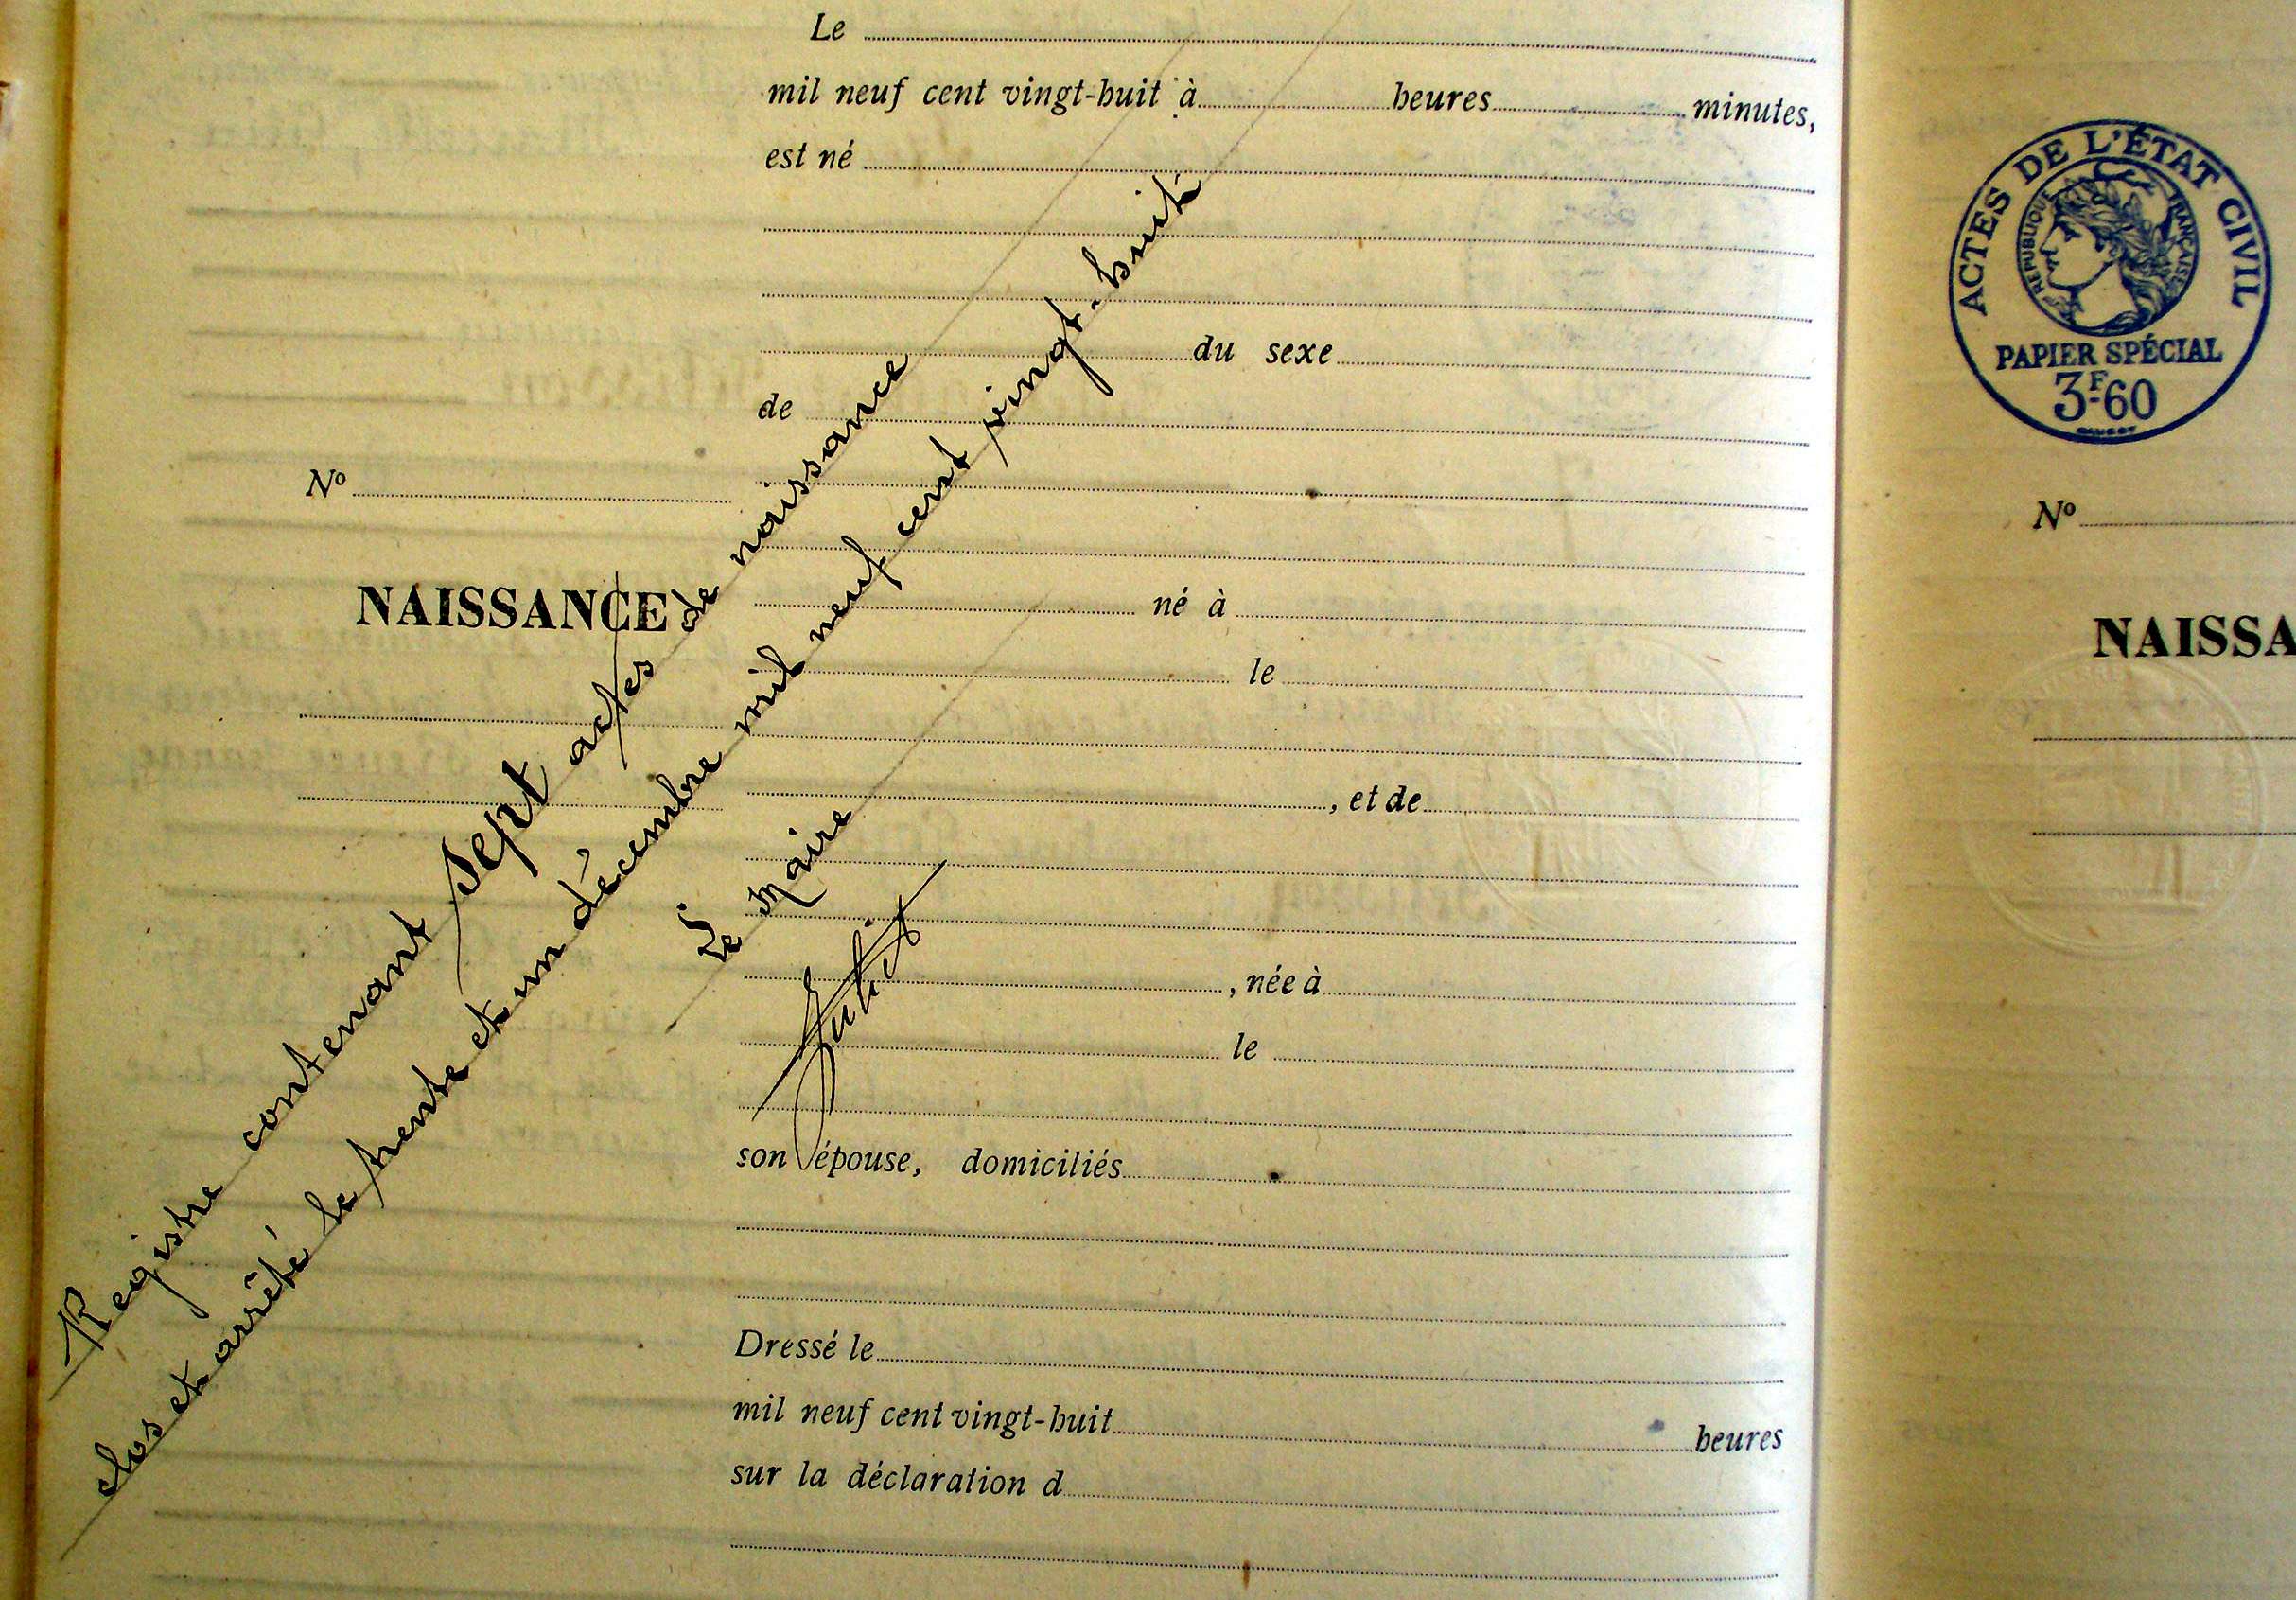 Le
mil neuf cent vingt-huit à heures minutes,
est né
du sexe
de
Nº
NAISSANCE
né à
le
, et de
, née à
le
son épouse, domiciliés
Dressé le
mil neuf cent vingt-huit heures
sur la déclaration d
Registre contenant sept actes de naissance
clos et arrêté le trente et un décembre mil neuf cent vingt-huit
Le Maire
ACTES DE L'ÉTAT CIVIL
RÉPUBLIQUE FRANÇAISE
PAPIER SPÉCIAL
3F60
Nº
NAISSA